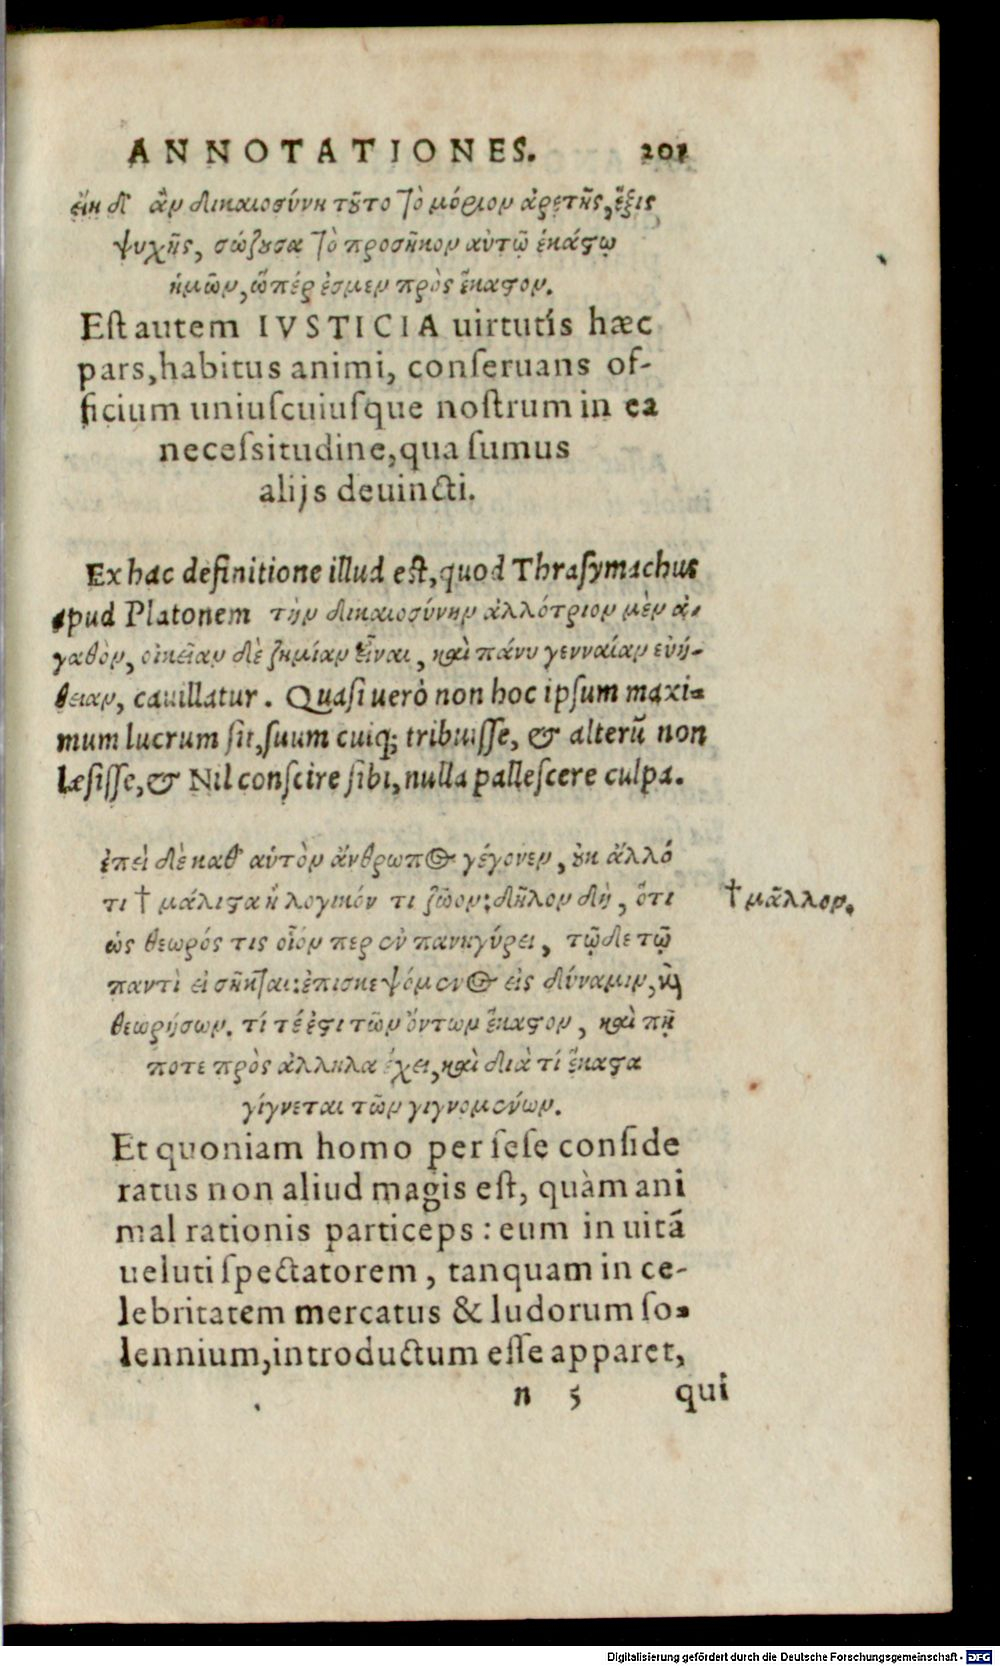 ANNOTATIONES. 201
εἴη δ' ἂν δικαιοσύνη τοῦτο τὸ μόριον ἀρετῆς, ἕξις
ψυχῆς, σώζουσα τὸ προσῆκον αὐτῷ ἑκάστῳ
ἡμῶν, ᾧ πέρ ἐσμεν πρὸς ἕκαστον.
Est autem IVSTICIA uirtutis hæc
pars, habitus animi, conſeruans of-
ficium uniuſcuiuſque noſtrum in ea
neceſsitudine, qua ſumus
alijs deuincti.
Ex hac definitione illud eſt, quod Thraſymachus
apud Platonem τὴν δικαιοσύνην ἀλλότριον μὲν ἀ-
γαθὸν, οἰκείαν δὲ ζημίαν εἶναι, καὶ πάνυ γενναίαν εὐή-
θειαν, cauillatur. Quaſi uerò non hoc ipſum maxi-
mum lucrum ſit, ſuum cuiq; tribuiſſe, & alterũ non
læſiſſe, & Nil conſcire ſibi, nulla palleſcere culpa.
ἐπεὶ δὲ καθ' αὑτὸν ἄνθρωπος γέγονεν, οὐκ ἄλλό
τι † μάλιστα ἢ λογικόν τι ζῶον: δῆλον δὴ, ὅτι
ὡς θεωρός τις οἷον περ ἐν πανηγύρει, τῷδε τῷ
παντὶ εἰσῆκται: ἐπισκεψόμενος εἰς δύναμιν, καὶ
θεωρήσων. τί τέ ἐστι τῶν ὄντων ἕκαστον, καὶ πῆ
ποτε πρὸς ἄλληλα ἔχει, καὶ διὰ τί ἕκαστα
γίγνεται τῶν γιγνομένων.
† μᾶλλον.
Et quoniam homo per ſeſe conſide
ratus non aliud magis eſt, quàm ani
mal rationis particeps: eum in uitã
ueluti ſpectatorem, tanquam in ce-
lebritatem mercatus & ludorum ſo-
lennium, introductum eſſe apparet,
n 5 qui
Digitalisierung gefördert durch die Deutsche Forschungsgemeinschaft - DFG